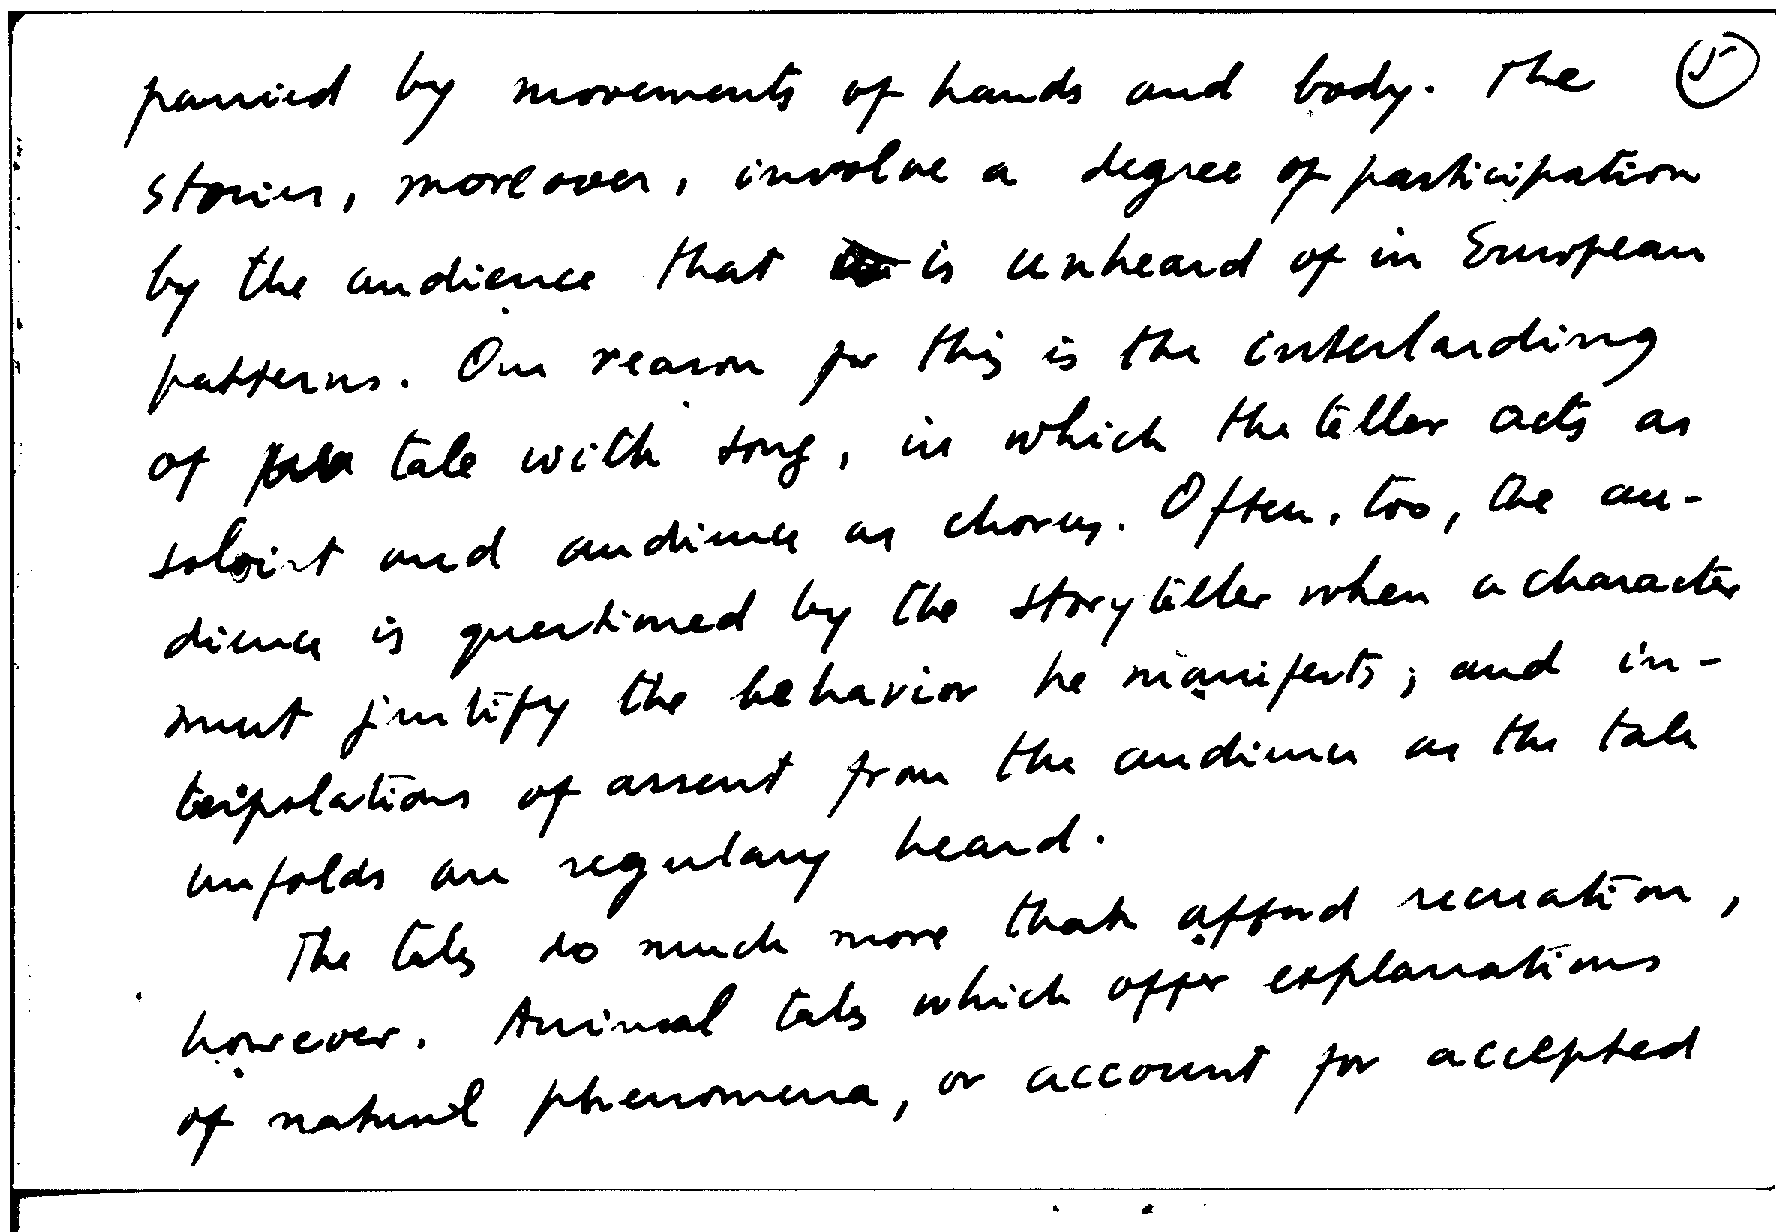 panied by movements of hands and body. The 5
stories, moreover, involve a degree of participation
by the audience that is unheard of in European
patterns. One reason for this is the interlarding
of tale with song, in which the teller acts as
soloist and audience as chorus. Often, too, the au-
dience is questioned by the storyteller when a character
must justify the behavior he manifests; and in-
terpolations of assent from the audience as the tale
unfolds are regulary heard.
The tales do much more than afford recreation,
however. Animal tales which offer explanations
of natural phenomena, or account for accepted